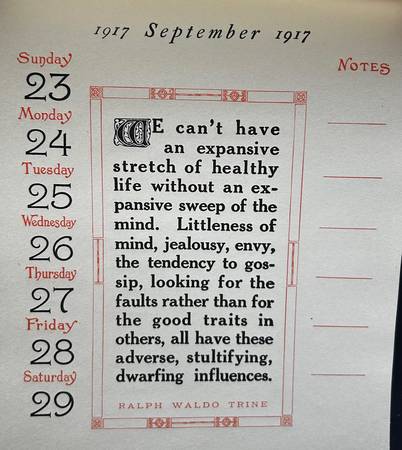 1917 September 1917
Sunday
23
Monday
24
Tuesday
25
Wednesday
26
Thursday
27
Friday
28
Saturday
29
WE can't have
an expansive
stretch of healthy
life without an ex-
pansive sweep of the
mind. Littleness of
mind, jealousy, envy,
the tendency to gos-
sip, looking for the
faults rather than for
the good traits in
others, all have these
adverse, stultifying,
dwarfing influences.
RALPH WALDO TRINE
NOTES